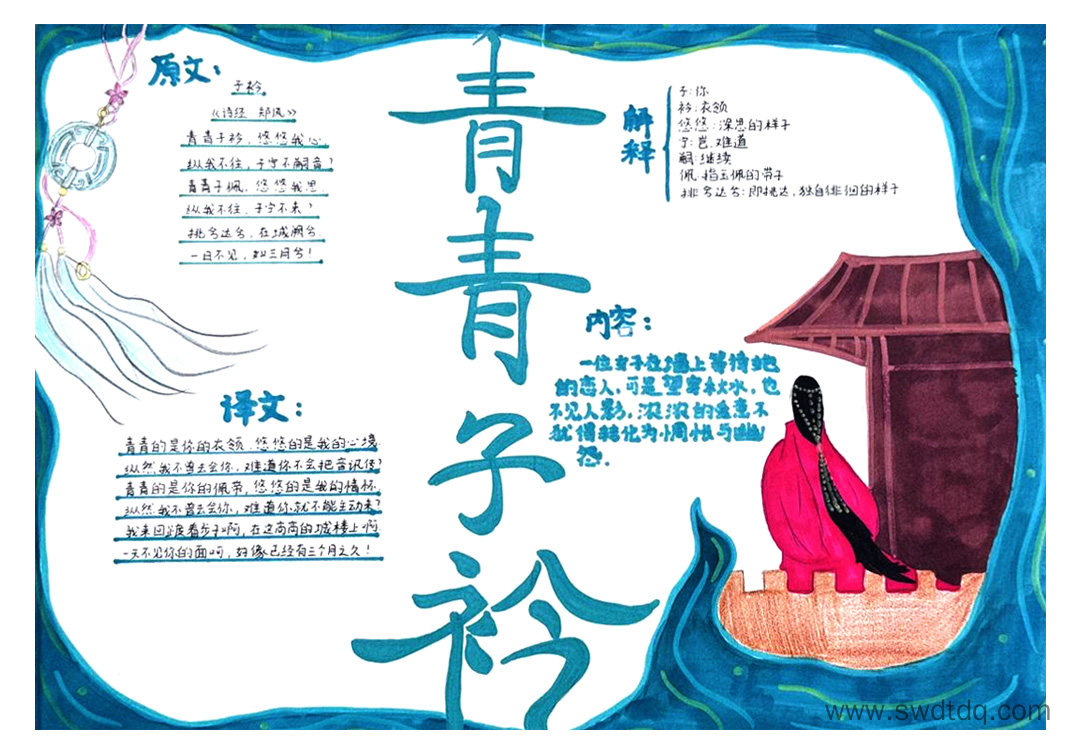 原文：
子衿
《诗经 郑风》
青青子衿，悠悠我心
纵我不往，子宁不嗣音？
青青子佩，悠悠我思
纵我不往，子宁不来？
挑兮达兮，在城阙兮
一日不见，如三月兮！
青青子衿
解释
子：你
衿：衣领
悠悠：深思的样子
宁：岂，难道
嗣：继续
佩：指玉佩的带子
挑兮达兮：即挑达，独自徘徊的样子
内容：
一位女子在墙上等待她
的恋人，可是望穿秋水，也
不见人影，浓浓的爱意不
犹得转化为惆怅与幽
怨．
译文：
青青的是你的衣领，悠悠的是我的心境
纵然我不曾去会你，难道你不会把音讯传？
青青的是你的佩带，悠悠的是我的情怀
纵然我不曾去会你，难道你就不能主动来？
我来回踱着步子啊，在这高高的城楼上啊
一天不见你的面呵，好像已经有三个月之久！
www.swdtdq.com